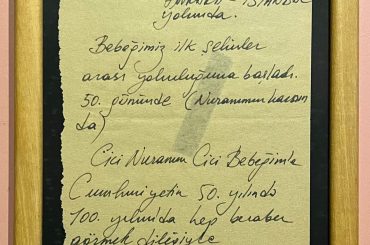 İSTANBUL
yolunda.
Bebeğimiz ilk şehirler
arası yolculuğuna başladı.
50. gününde (Nuranımın kucağın
da)
Cici Nuranım Cici Bebeğimle
Cumhuriyetin 50. yılında
100. yılında hep beraber
görmek dileğiyle